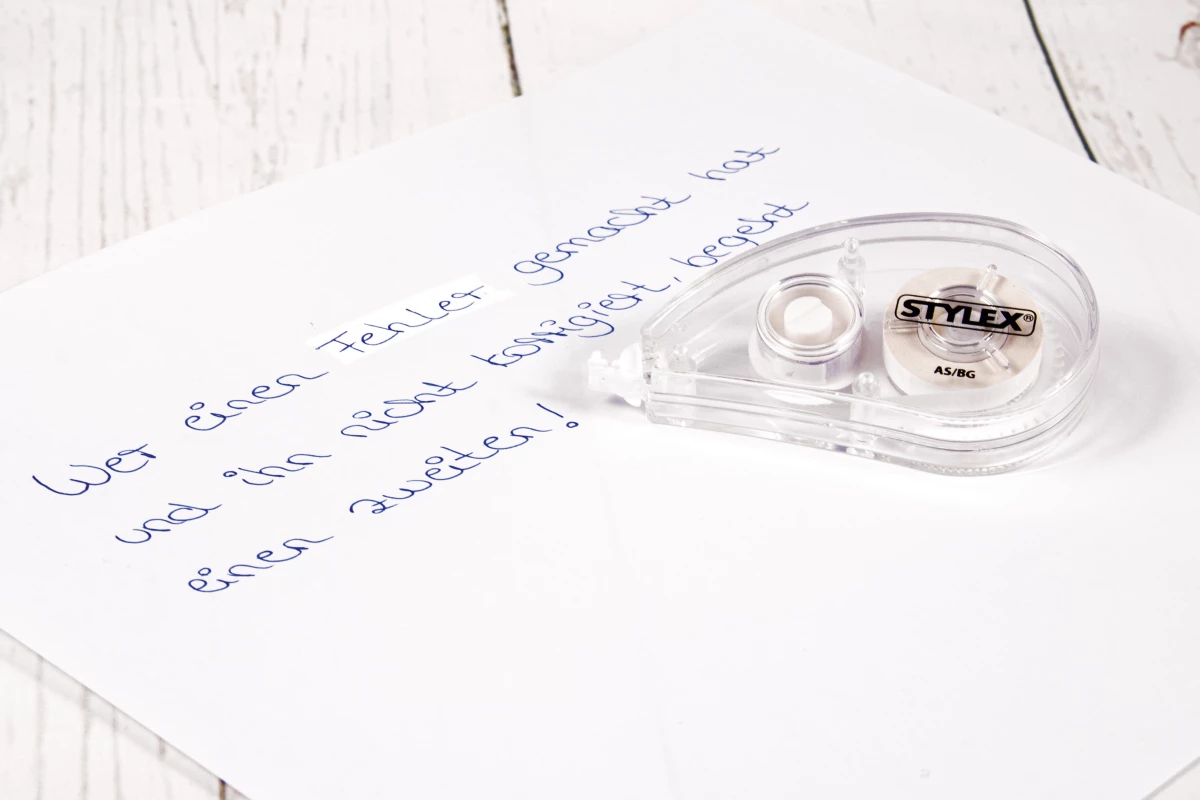 Wer einen Fehler gemacht hat
und ihn nicht korrigiert, begeht
einen zweiten!
STYLEX®
AS/BG